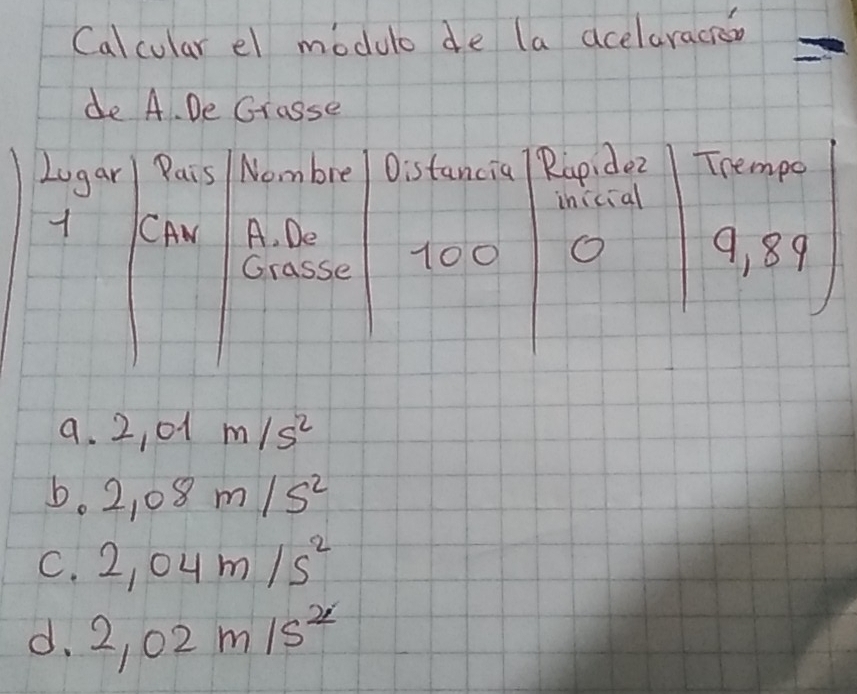 Calcular el módulo de la acelaración
de A. De Grasse
Lugar País Nombre Distancia Rapidez inicial Tiempo
1 CAN A. De Grasse 100 0 9,89
a. 2,01 m/s²
b. 2,08 m/s²
c. 2,04 m/s²
d. 2,02 m/s²